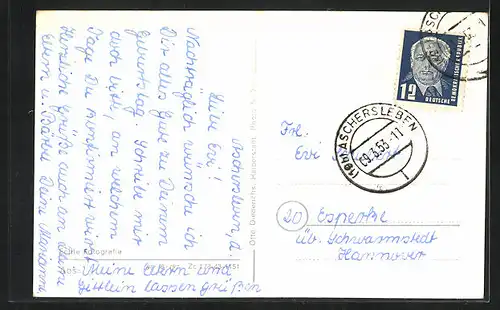 Aschersleben, d.
Liebe Evi!
Nachträglich wünsche ich
Dir alles Gute zu Deinem
Geburtstag. Schreibe mir
doch bitte, an welchem
Tage Du konfirmiert wirst.
Herzliche Grüße auch an Deine
Eltern u. Bärbel Deine Marianne
Meine Eltern und
lassen grüßen
Echte Fotografie
DEUTSCHE
DEMOKRATISCHE REPUBLIK
12
(19b) ASCHERSLEBEN
09.3.53.-11
Frl.
Evi
20 Esperke
üb. Schwarmstedt
Hannover